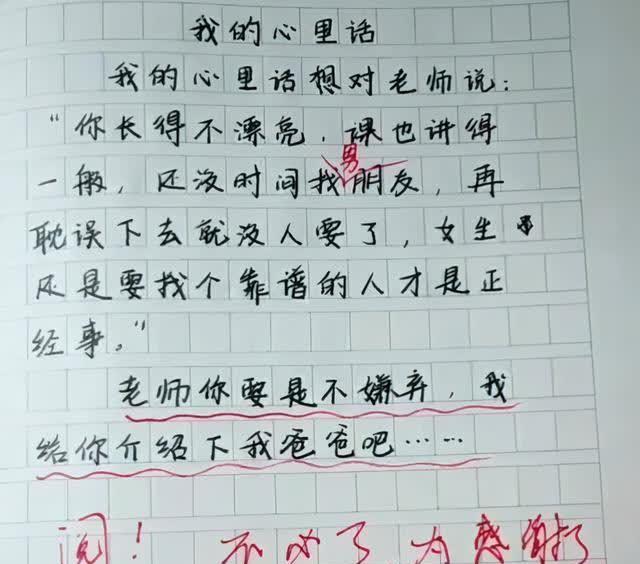 我的心里话
我的心里话想对老师说：
“你长得不漂亮，课也讲得
男
一般，还没时间找朋友，再
耽误下去就没人要了，女生
还是要找个靠谱的人才是正
经事。”
老师你要是不嫌弃，我
给你介绍下我爸爸吧……
！ 不必了